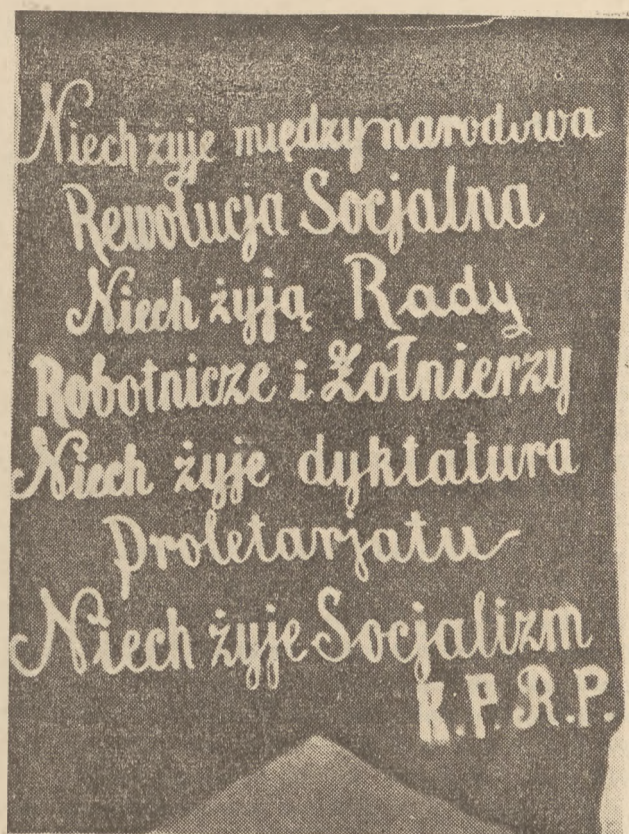 Niech żyje międzynarodowa
Rewolucja Socjalna
Niech żyją Rady
Robotnicze i Żołnierzy
Niech żyje dyktatura
Proletarjatu
Niech żyje Socjalizm
K.P.R.P.